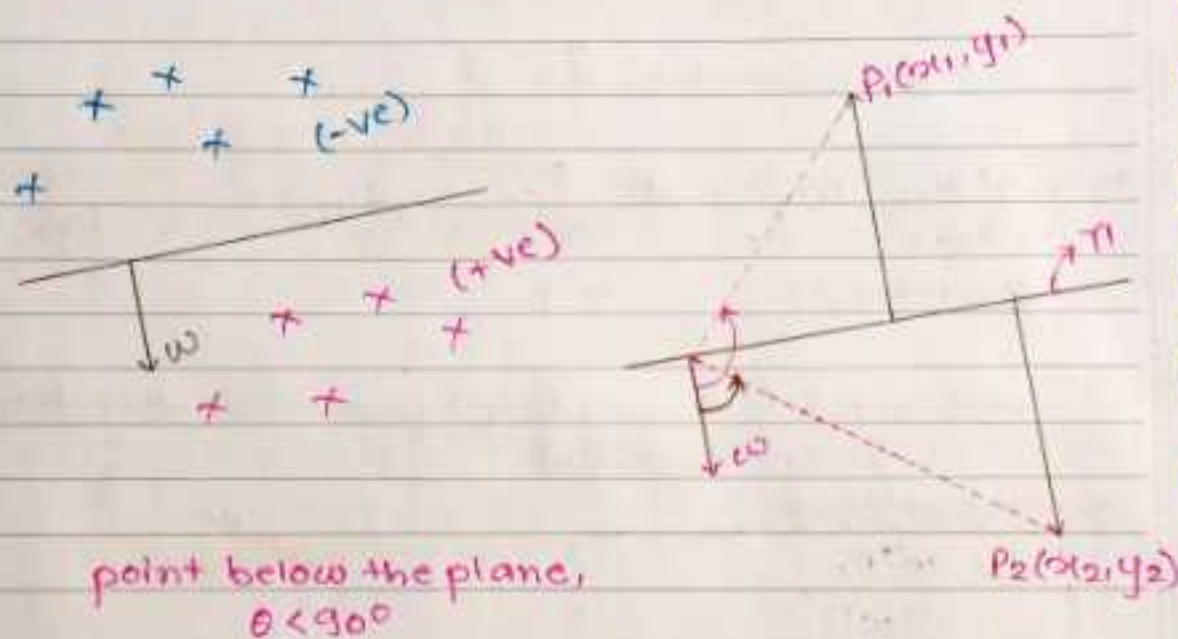 (-ve)
(+ve)
w
P₁(x₁, y₁)
π₁
w
P₂(x₂, y₂)
point below the plane,
θ < 90°